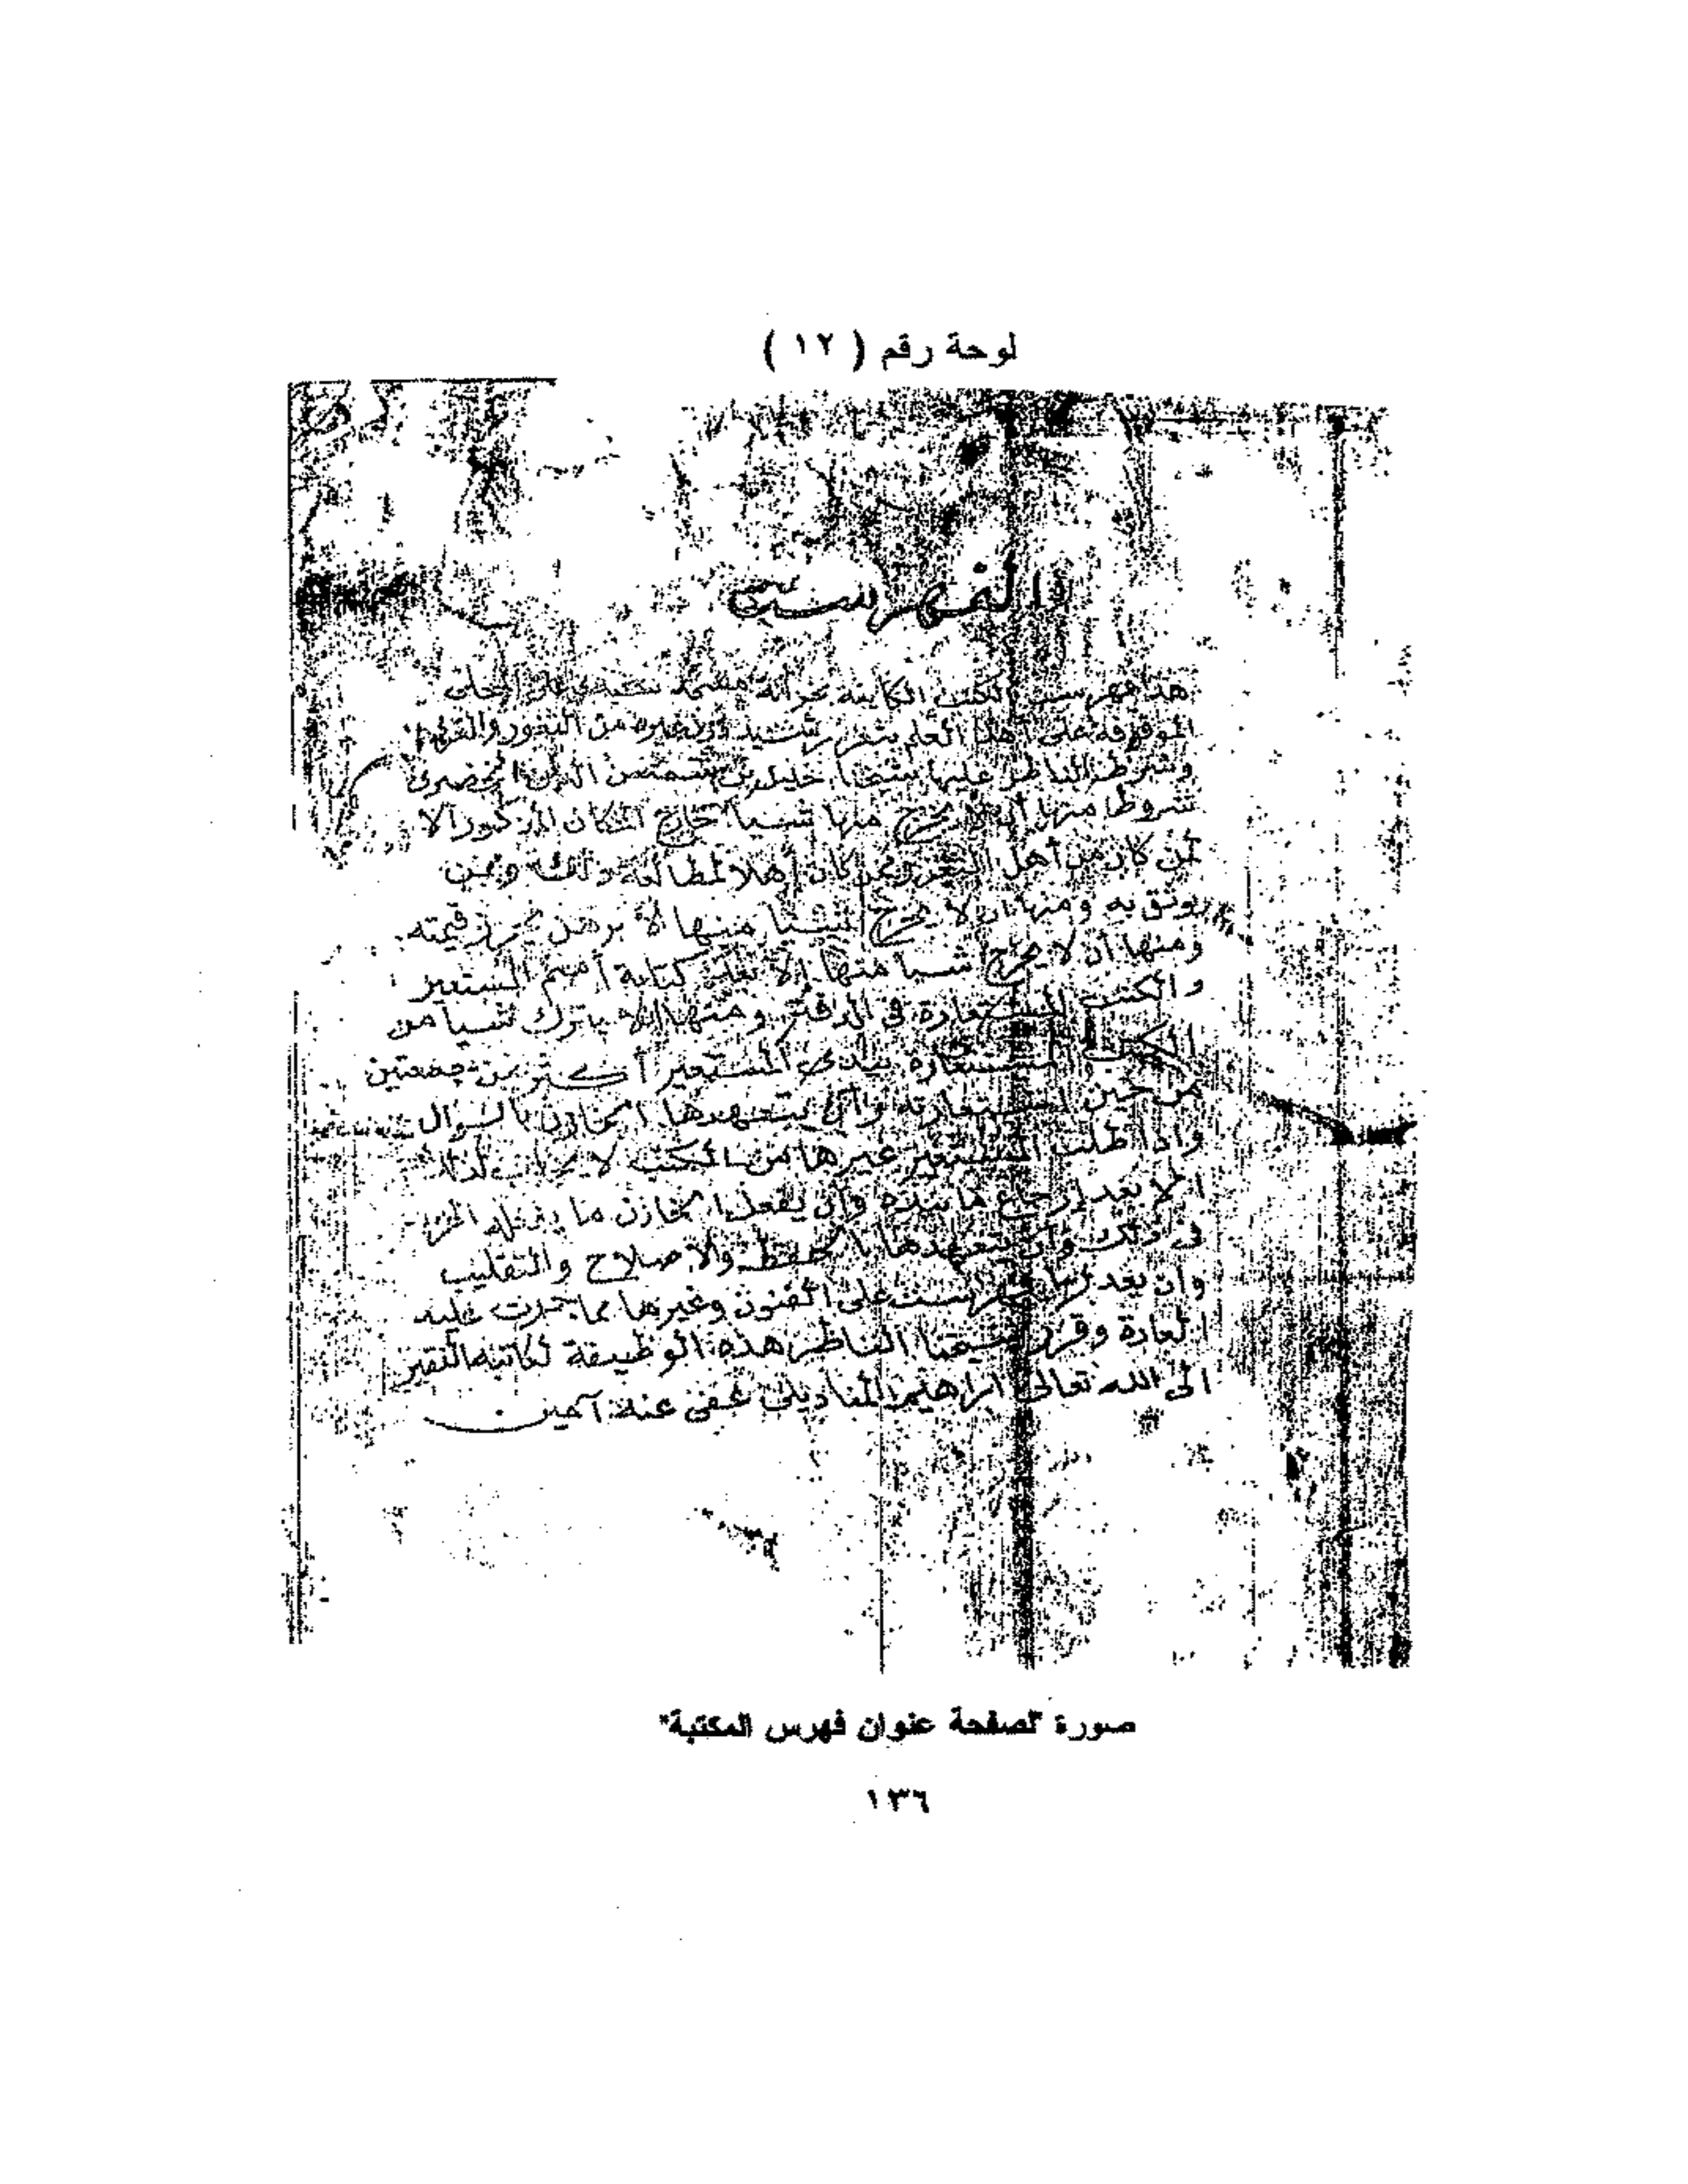 لوحة رقم ( ١٢ )
الفهرست
هذا فهرست الكتب الكاينة بخزانة مسجد سيدي علي المحلي
الموقوفة على أهل العلم بثغر رشيد دون غيره من الثغور والقرى
وشرط الناظر عليها شيخنا خليل بن شمس الدين الخضري
شروطا منها أن لا يخرج منها شيئا خارج المكان المذكور الا
لمن كان من أهل الثغر وممن كان أهلا لمطالعة ذلك وممن
يوثق به ومنها ان لا يخرج شيئا منها الا برهن يحرز قيمته
ومنها أن لا يخرج شيا منها إلا بعد كتابة أسم المستعير
والكتب المستعارة في الدفتر ومنها الا يترك شيا من
الكتب المستعارة بيدى المستعير أكثر من جمعتين
من حين استعارته وأن يتعهدها الخازن بالسوال
واذا طلب المستعير غيرها من الكتب لا يجاب لذلك
الا بعد إرجاع ما بيده وأن يفعل الخازن ما يفعله
فى ذلك وأن يتعهدها بالحفظ والاصلاح والتقليب
وان يعد لها فهرست على الفنون وغيرها مما جرت عليه
العادة وقرر شيخنا الناظر هذه الوظيفة لكاتبه الفقير
الى الله تعالى ابراهيم عفى عنه آمين
صورة "لصفحة عنوان فهرس المكتبة"
١٣٦